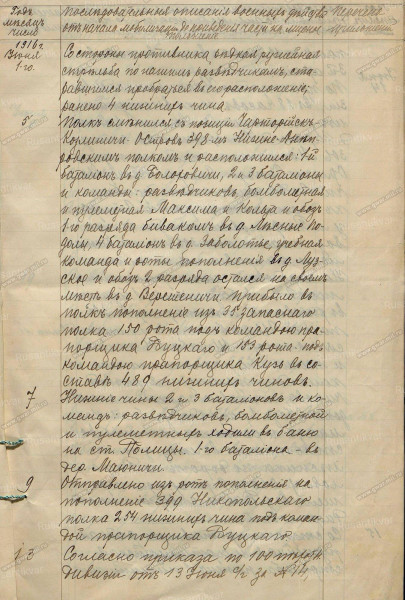 Годъ
мѣсяцъ
число
Последовательныя описанія военныхъ дѣйствій
отъ начала мобилизаціи до приведенія части на мирное
положеніе
1916 г.
Іюня
1-го.
Со стороны противника рѣдкая ружейная
стрѣльба по нашимъ развѣдчикамъ, ста-
равшимся пробраться въ его расположеніе;
ранено 4 нижнихъ чина.
5
Полкъ смѣнился съ позиціи Чарторійскъ-
Козлиничи. Островъ 398 мъ Нижне-Днѣп-
ровскимъ полкомъ и расположился: 1-й
баталіонъ въ д. 2 и 3 баталіоны
и команды: развѣдчиковъ, бомбометная
и пулеметныя Максима и Кольта и обозъ
1-го разряда бивакомъ въ д. Лѣсные По-
4 баталіонъ въ д. Заболотье, учебная
команда и роты пополненія въ д.
и обозъ 2 разряда остался на своемъ
мѣстѣ въ д. Верстеничи. Прибыло въ
полкъ пополненіе изъ 35 запаснаго
полка 150 рота подъ командою пра-
порщика Буцкаго и 183 рота подъ
командою прапорщика Кузъ въ со-
ставѣ 489 нижнихъ чиновъ.
7
Нижніе чины 2 и 3 баталіоновъ и ко-
мандъ: развѣдчиковъ, бомбометной
и пулеметныхъ ходили въ баню
на ст. Полицы. 1-го баталіона - въ
дер. Маюничи.
9
Отправлено изъ ротъ пополненія на
пополненіе 399 Никопольскаго
полка 254 нижнихъ чина подъ коман-
дой прапорщика Буцкаго.
13
Согласно приказа по 100 пѣхотн.
дивизіи отъ 13 Іюня с/г за № 74